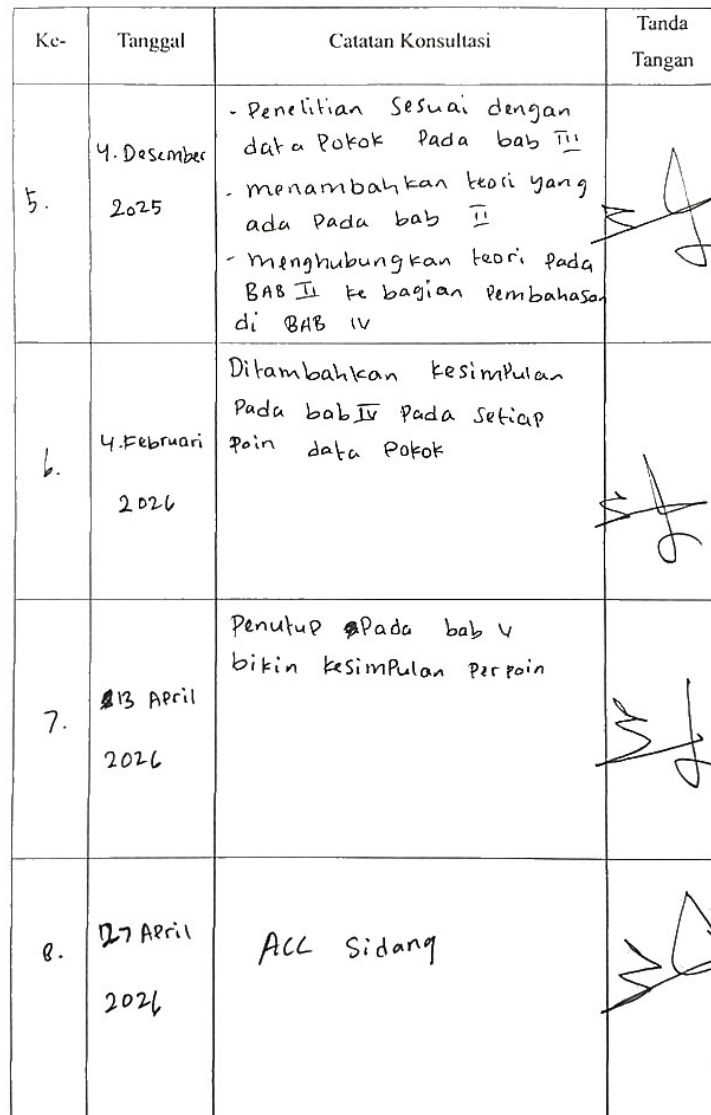 Ke- Tanggal Catatan Konsultasi Tanda Tangan
5.
4. Desember
2025
- Penelitian Sesuai dengan
data Pokok Pada bab III
- menambahkan teori yang
ada Pada bab II
- menghubungkan teori Pada
BAB II ke bagian Pembahasan
di BAB IV
6.
4. Februari
2026
Ditambahkan kesimpulan
Pada bab IV Pada Setiap
Poin data Pokok
7.
13 April
2026
Penutup Pada bab V
bikin kesimpulan Per poin
8.
27 April
2026
ACC Sidang